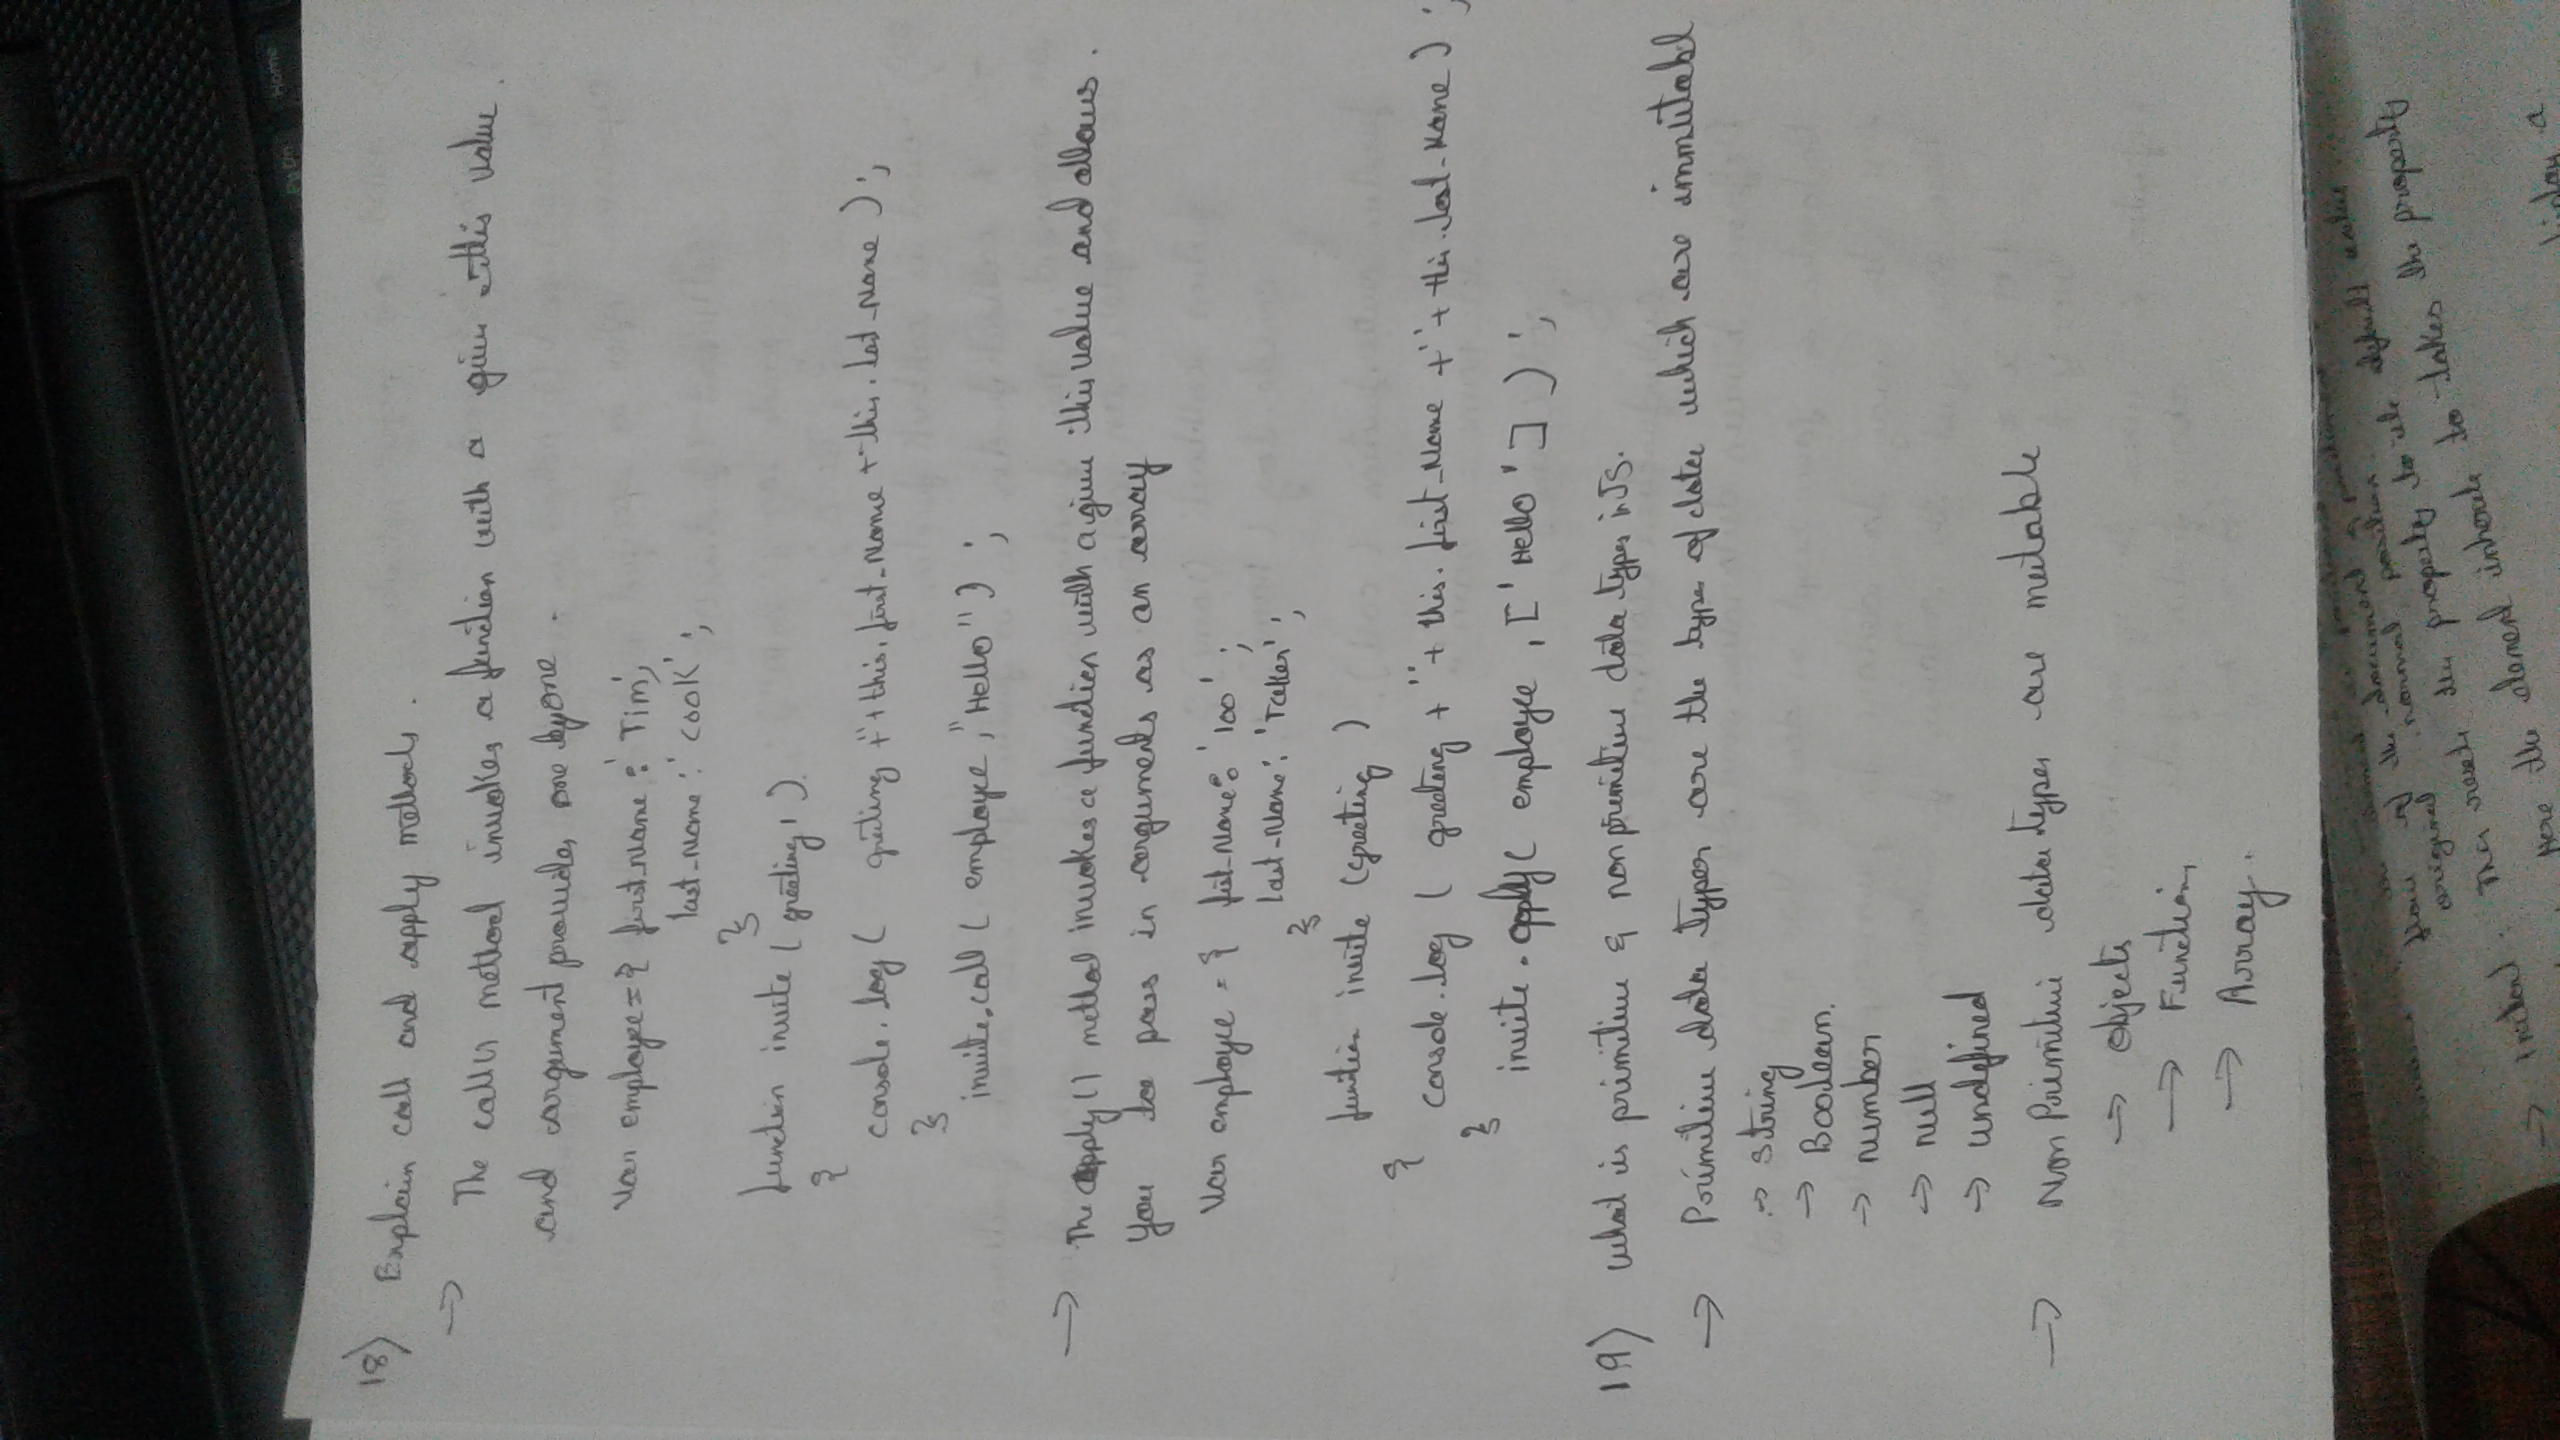 Pg Dn
Home
18) Explain call and apply methods.
→ The call() method invokes a function with a given this value.
and argument provides one by one.
Var employee = { first_Name : 'Tim',
last_Name : 'COOK' ;
}
function invite ( greeting1 )
{
console.log ( greeting +" "+ this. first_Name + this. last_Name ) ;
}
invite.call ( employee , "Hello" ) ;
→ The apply() method invokes a function with a given this value and allows.
you to pass in arguments as an array
Var employee = { fist_Name: '100' ;
last_Name: ;
}
function invite (greeting )
{
console.log ( greeting + " "+ this. first_Name +' '+ this. last_Name ) ;
}
invite.apply( employee , [ 'Hello' ] ) ;
19) what is primitive & non primitive data types in JS.
→ Primitive data types are the type of data which are immutabl
→ String
→ Boolean.
→ number
→ null
→ undefined
→ Non Primitive data types are mutable
→ objects
→ Functions
→ Array.
flow of the document
original normal position.
→ Initial : This resets the property to its default value.
Here the element to takes the property
a